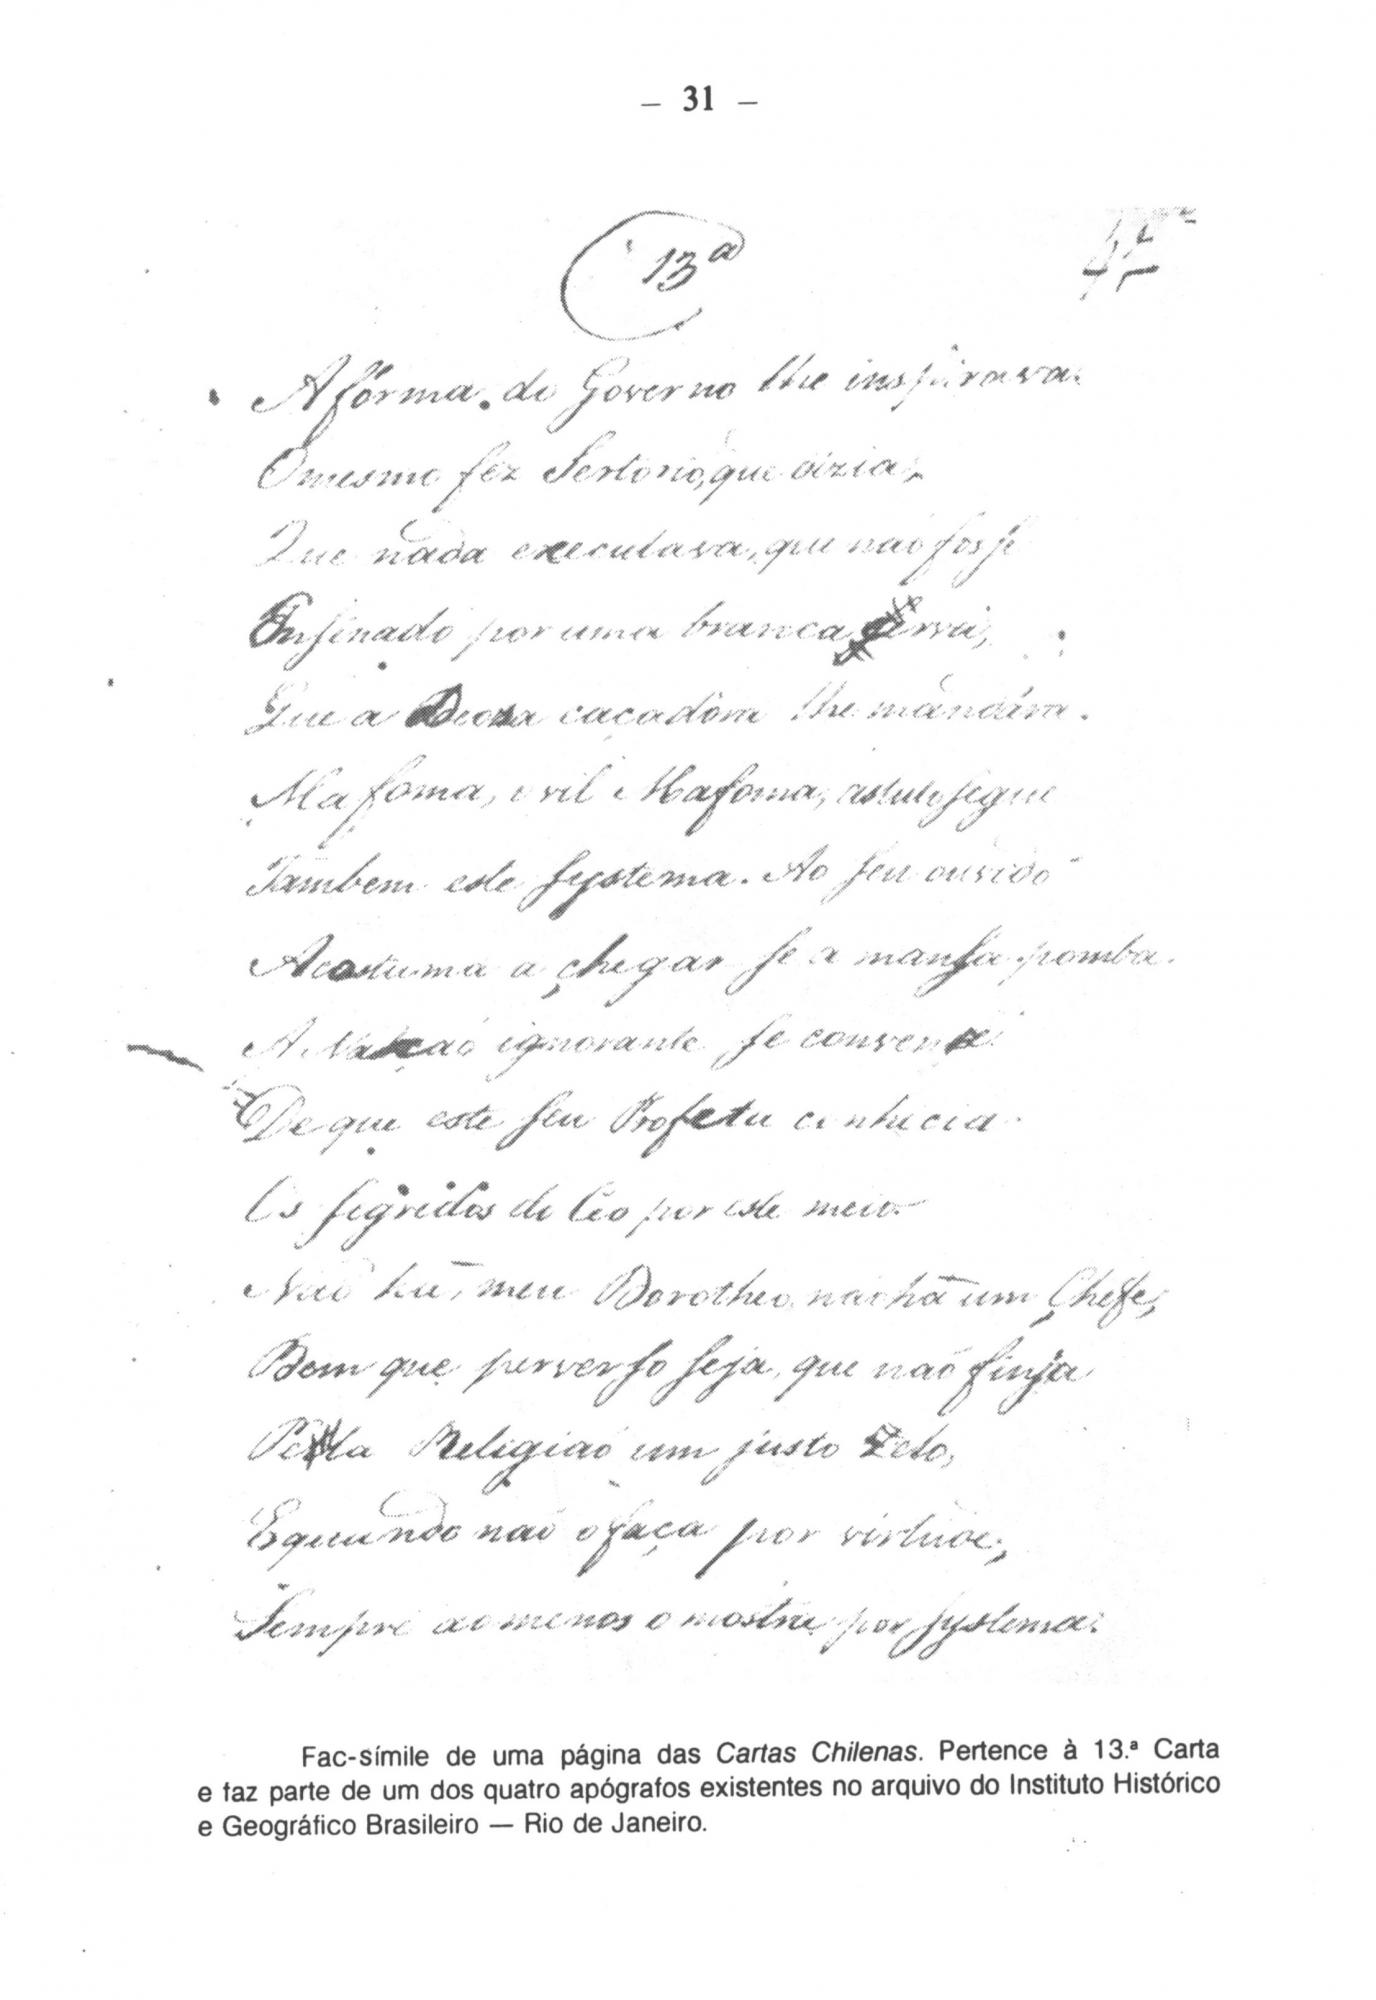 – 31 –
13ª
A fórma de Governo lhe inspirava.
O mesmo fez Sertorio, que dizia,
Que nada executava, que naõ fosse
Ensinado por uma branca serva,
Que a Deoza caçadôra lhe mandára.
Mafoma, o vil Mafoma, astuto segue
Tambem este systema. Ao seu ouvido
Acostuma a chegar se a mansa pomba.
A Naçaõ ignorante se convence
De que este seu Profeta conhecia
Os segredos do Ceo por este meio.
Naõ há, meu Dorotheo, naõ há um Chefe,
Bem que perverso seja, que naõ finja
Pella Religiaõ um justo Zelo,
E quando naõ o faça por virtude,
Sempre ao menos o mostra por systema.
Fac-símile de uma página das Cartas Chilenas. Pertence à 13.ª Carta
e faz parte de um dos quatro apógrafos existentes no arquivo do Instituto Histórico
e Geográfico Brasileiro — Rio de Janeiro.